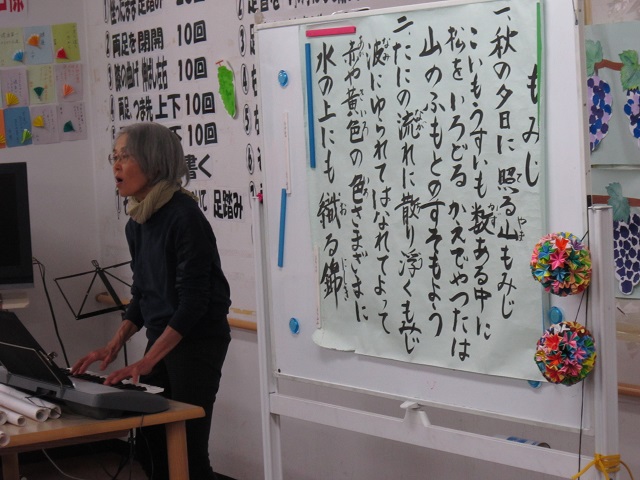 もみじ
一、秋の夕日に 照る山もみじ
こいもうすいも 数ある中に
松をいろどる かえでやつたは
山のふもとのすそもよう
二、たにの流れに 散り浮くもみじ
波にゆられて はなれてよって
赤や黄色の 色さまざまに
水の上にも 織る錦
10回
② 両足を開閉 10回
10回
④ 両足つま先上下 10回
10回
書く
足踏み